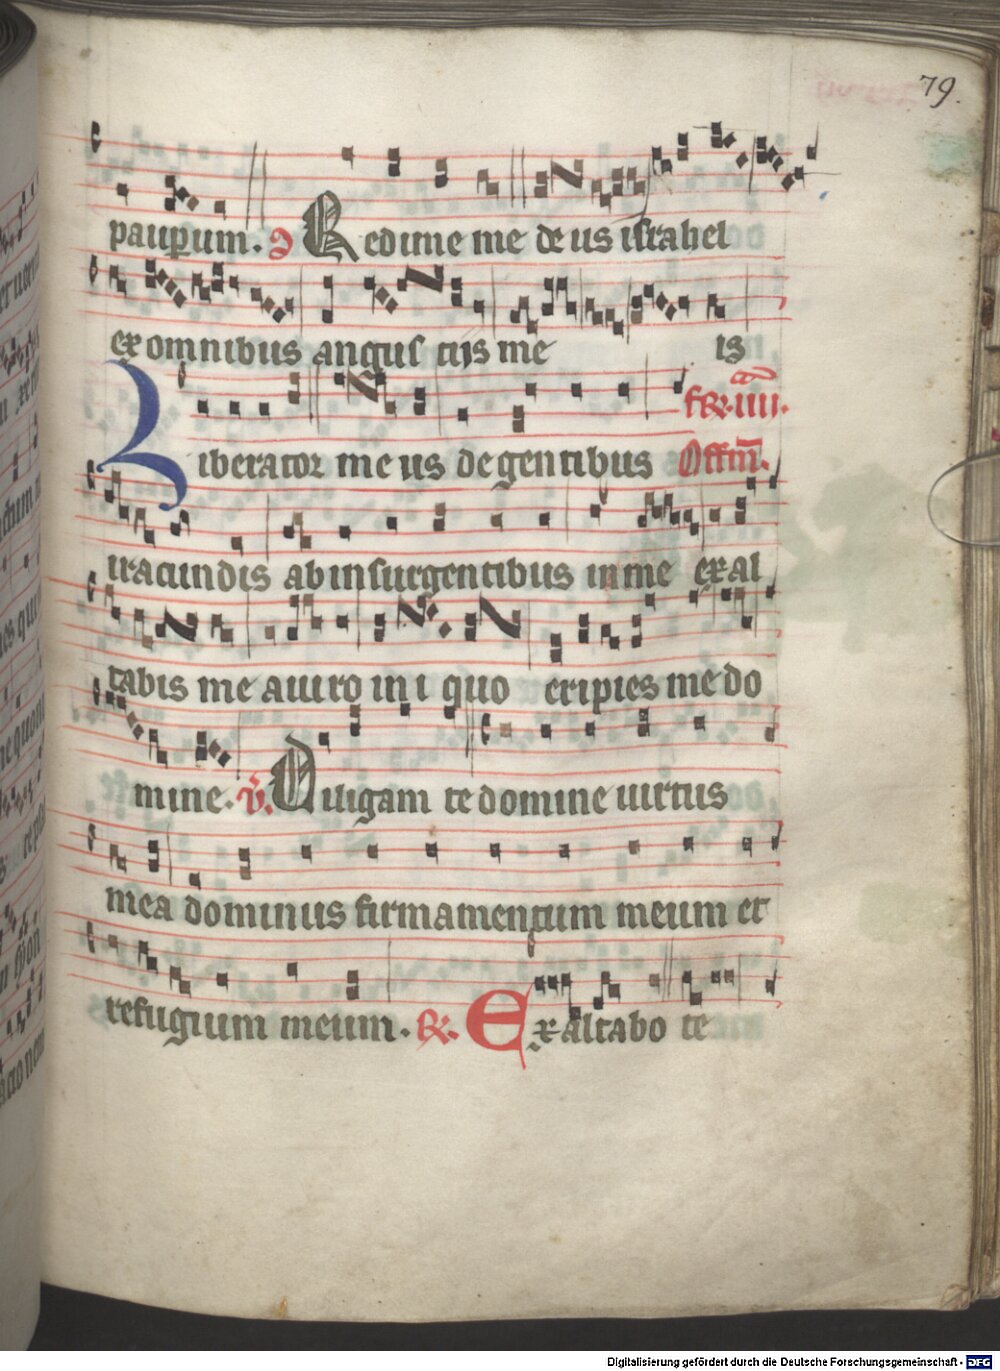 79.
paup̲um. Redime me deus israhel
ex omnibus angus tiis me is
fer. iiii.
Liberator meus de gentibus Offm̄.
iracundis ab insurgentibus in me exal
tabis me a uiro ini quo eripies me do
mine. V̄. Diligam te domine uirtus
mea dominus firmamentum meum et
refugium meum. R. Exaltabo te
Digitalisierung gefördert durch die Deutsche Forschungsgemeinschaft - DFG